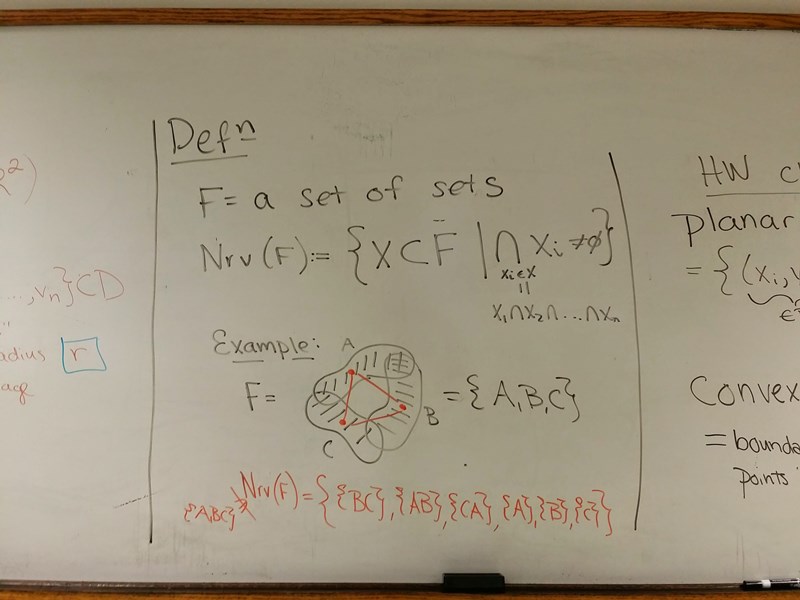 R²)
...,vₙ}⊂D
adius r
Defⁿ
F = a set of sets
Nrv(F) := {X ⊂ F | ∩ Xi ≠ ∅}
Xi∈X
||
X₁∩X₂∩...∩Xₙ
Example:
A
F =
B
C
= {A,B,C}
Nrv(F) = {{BC},{AB},{CA},{A},{B},{C}}
{A,B,C}
HW
Planar
= {(xi,v
Convex
= bounda
points